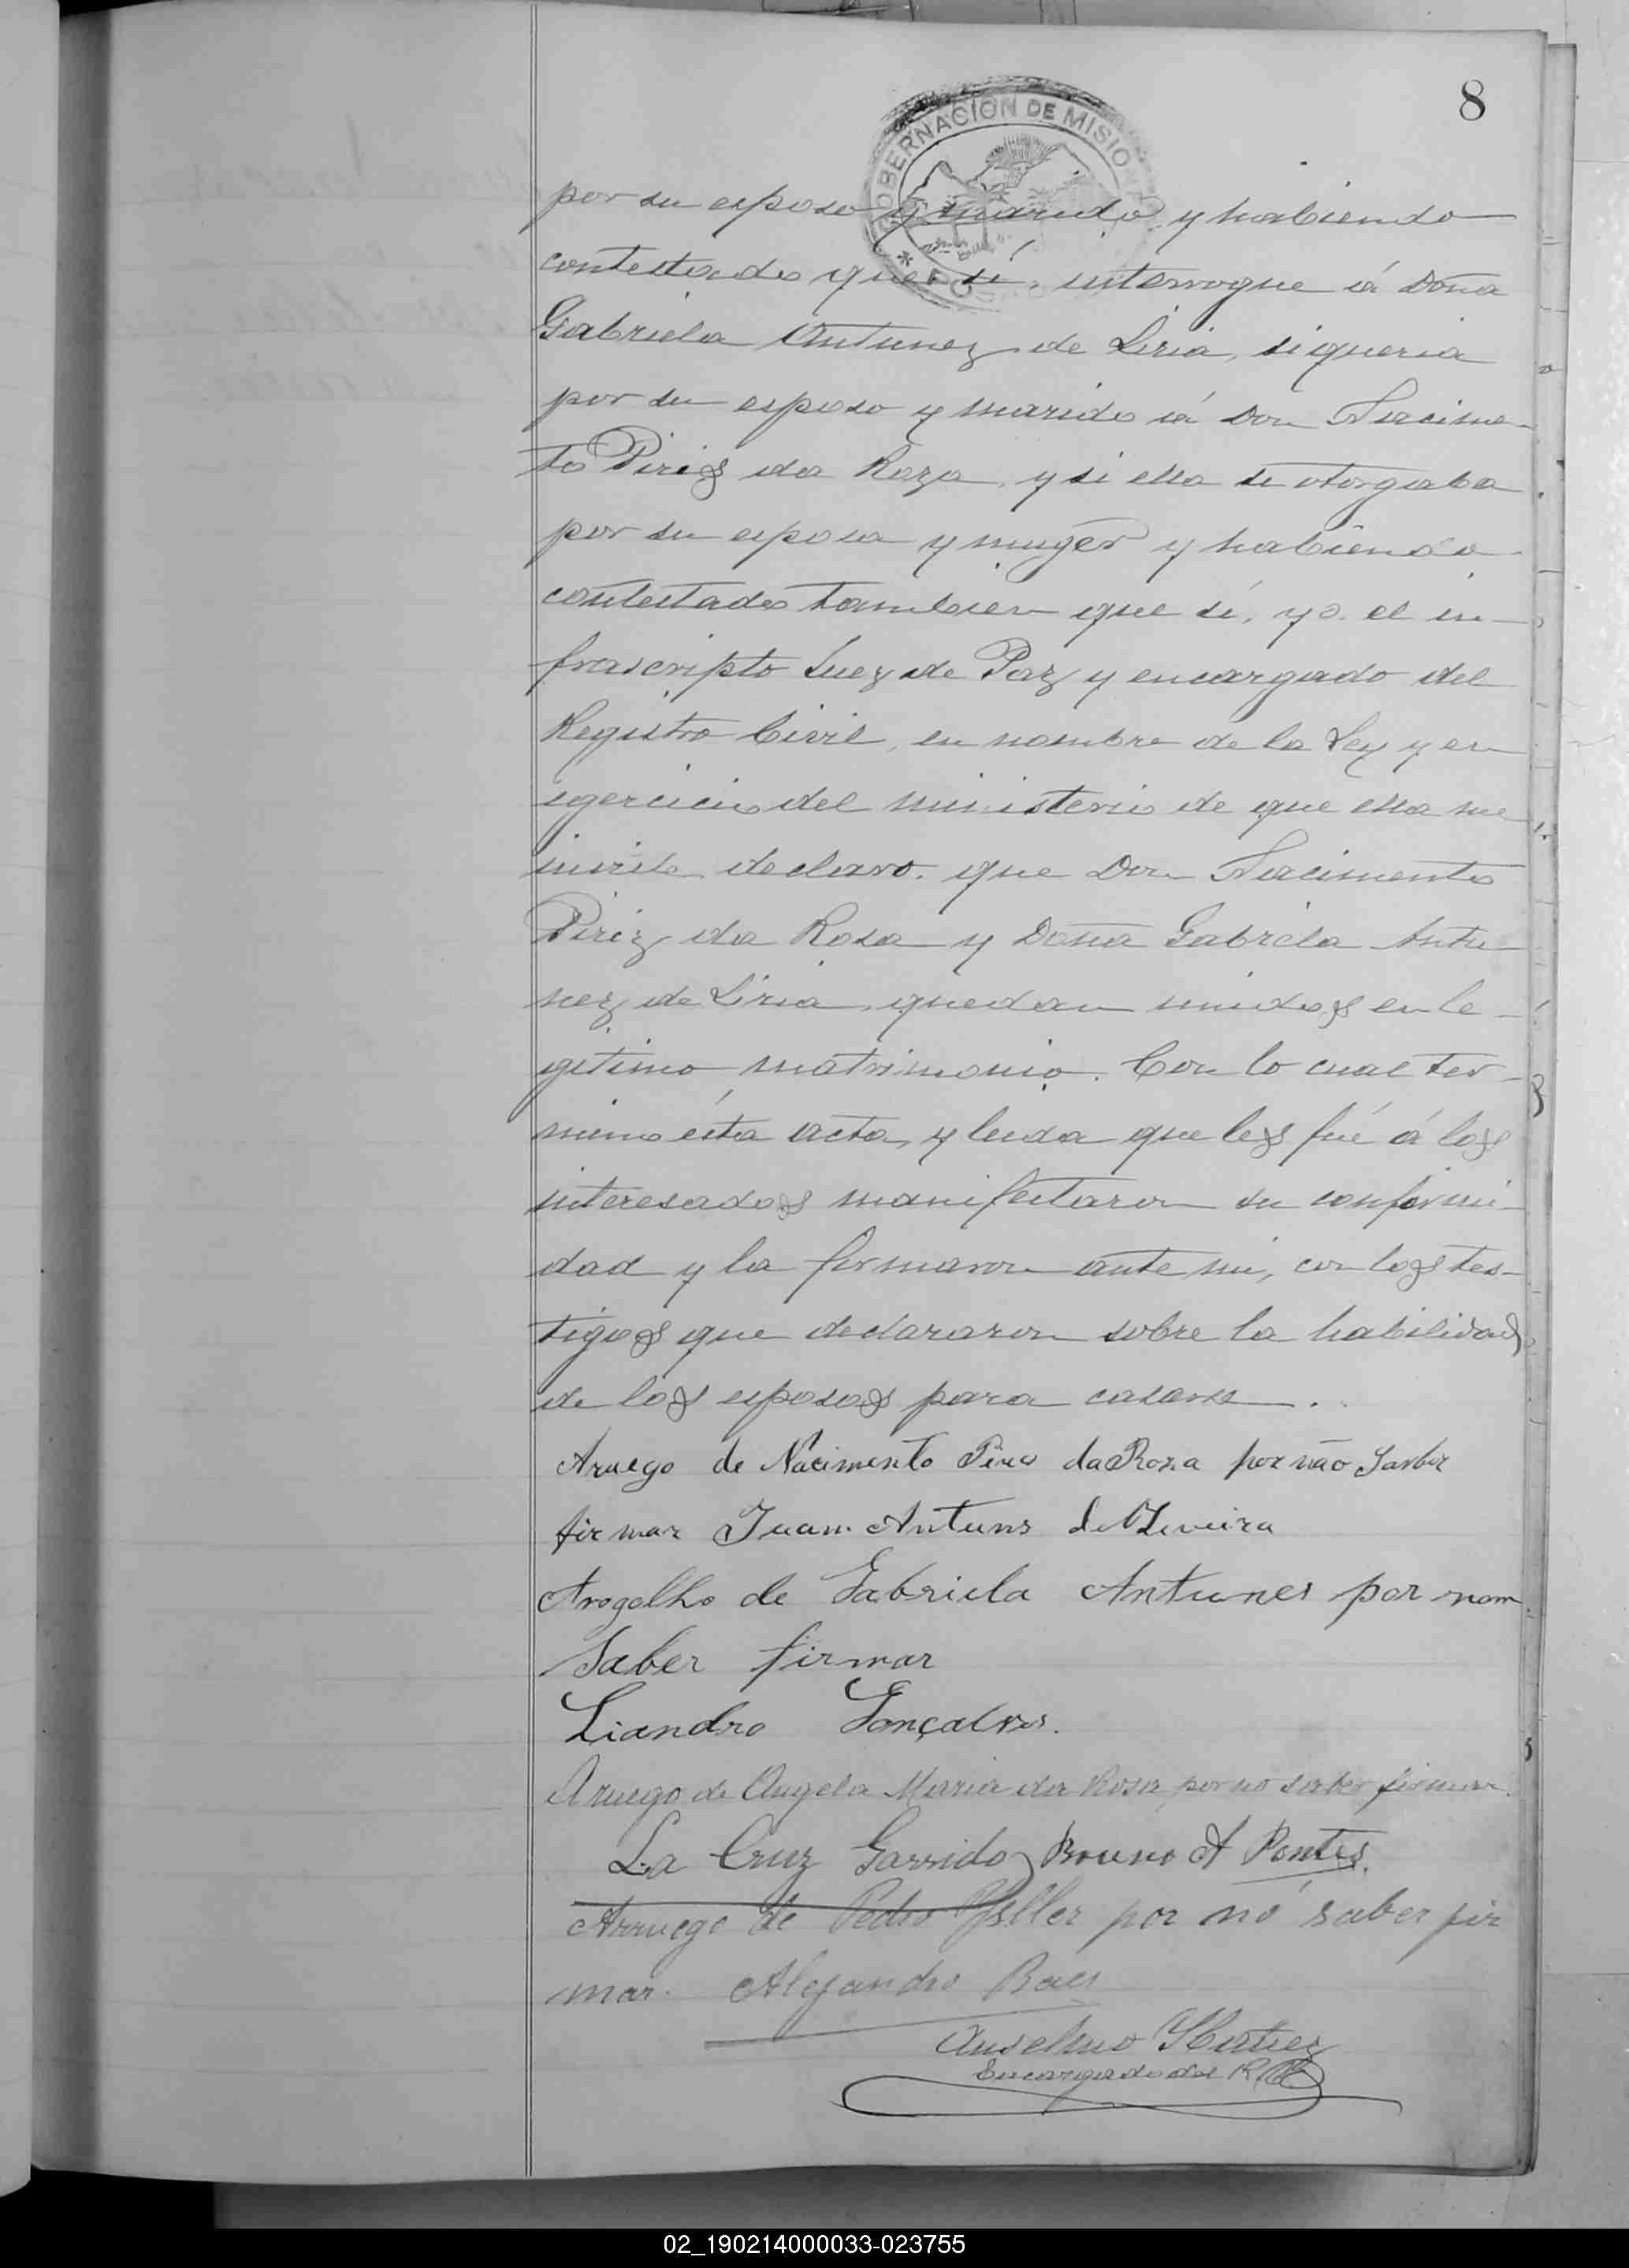 8
GOBERNACION DE MISIO
por su esposo y marido y habiendo
contestado que sí, interrogue á Doña
Gabriela Antunez de Liria, si queria
por su esposo y marido á Don Nacimen-
to Piriz da Roza, y si ella se otorgaba
por su esposa y muger y habiendo
contestado tambien que sí, yo el in-
frascripto Juez de Paz y encargado del
Registro Civil, en nombre de la Ley y en
egercicio del ministerio de que ella me
inviste declaro que Don Nacimento
Piriz da Rosa y Doña Gabriela Antu-
nez de Liria, quedan unidos en le-
gitimo matrimonio. Con lo cual ter-
mino ésta acta, y leida que les fué á los
interesados manifestaron su conformi-
dad y la firmaron ante mi, con los tes-
tigos que declararon sobre la habilidad
de los esposos para casarse.
Aruego de Nacimento Pires da Roza por não Sarber
firmar Juan Antuns
Arogolho de Gabriela Antunes por nom
Saber firmar
Liandro Gonçalves.
Aruego de Angela Maria da Rosa, por no saber firmar.
La Cruz Garrido Bruno A Pontes.
Arruego de Pedro por nó saber fir
mar. Alejandro Baes
Anselmo
Encargado del R.
02_190214000033-023755